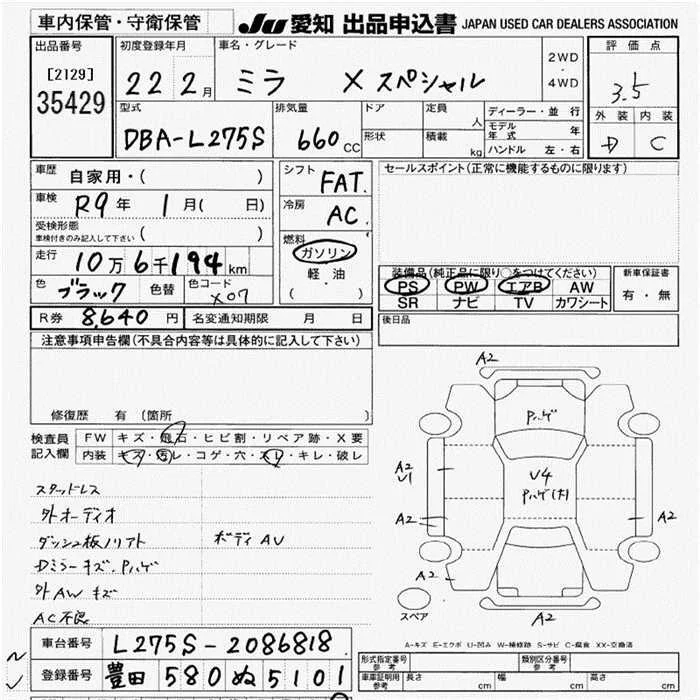 車内保管・守衛保管
JU 愛知 出品申込書 JAPAN USED CAR DEALERS ASSOCIATION
出品番号
[2129]
35429
初度登録年月
22 2月
車名・グレード
ミラ Xスペシャル
2WD
・
4WD
評価点
3.5
外装 内装
D C
型式
DBA-L275S
排気量
660 CC
ドア
形状
定員
人
積載
kg
ディーラー・並行
モデル年式 年
ハンドル 左・右
車歴
自家用・( )
車検
R9年 1月( 日)
受検形態
車検付きのみ記入して下さい ( )
走行
10万6千194km
色 ブラック 色替 色コード X07
シフト FAT.
冷房 AC.
燃料
ガソリン
軽・油
( )
セールスポイント(正常に機能するものに限ります)
装備品(純正品に限り○をつけてください)
PS PW エアB AW
SR ナビ TV カワシート
新車保証書
有・無
R券 8,640円 名変通知期限 月 日
後日品
注意事項申告欄(不具合内容等は具体的に記入して下さい)
修復歴 有(箇所 )
検査員記入欄
FW キズ・飛石・ヒビ割・リペア跡・X要
内装 キズ・汚レ・コゲ・穴・スレ・キレ・破レ
スタッドレス
外オーディオ
ダッシュ板ノリアト ボディAU
Dミラーキズ.Pハゲ
外AWキズ
AC不良
A2
Pハゲ
A2
U1
U4
Pハゲ(大)
A2
A2
A2
A2
スペア
A-キズ E-エクボ U-凹み W-補修跡 S-サビ C-腐食 XX-交換済
車台番号 L275S-2086818
登録番号 豊田 580 ぬ 5101
形式指定番号
参考
類別区分番号
参考
車庫証明用
参考
長さ cm 幅 cm 高さ cm